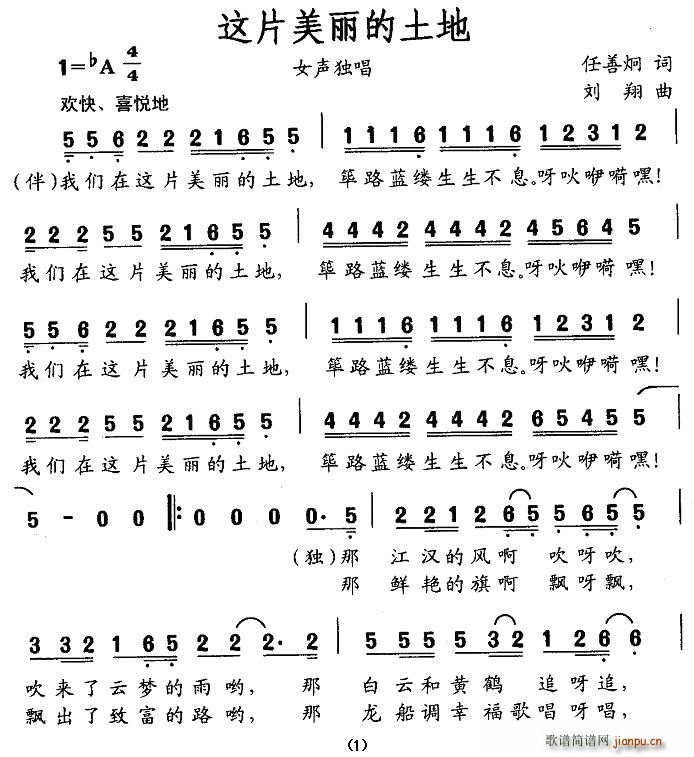 这片美丽的土地
1=♭A 4/4
女声独唱
任善炯 词
刘 翔 曲
欢快、喜悦地
5 5 6 2 2 2 1 6 5 5 | 1 1 1 6 1 1 1 6 1 2 3 1 2 |
(伴)我们在这片美丽的土地, 筚路蓝缕生生不息。呀吙咿嗬嘿!
2 2 2 5 5 2 1 6 5 5 | 4 4 4 2 4 4 4 2 4 5 6 4 5 |
我们在这片美丽的土地, 筚路蓝缕生生不息。呀吙咿嗬嘿!
5 5 6 2 2 2 1 6 5 5 | 1 1 1 6 1 1 1 6 1 2 3 1 2 |
我们在这片美丽的土地, 筚路蓝缕生生不息。呀吙咿嗬嘿!
2 2 2 5 5 2 1 6 5 5 | 4 4 4 2 4 4 4 2 6 5 4 5 5 |
我们在这片美丽的土地, 筚路蓝缕生生不息。呀吙咿嗬嘿!
5 - 0 0 ‖: 0 0 0 0· 5 | 2 2 1 2 6 5 5 6 5 5 |
(独)那 江汉的风啊 吹呀吹,
那 鲜艳的旗啊 飘呀飘,
3 3 2 1 6 5 2 2 2· 2 | 5 5 5 5 3 2 1 2 6 6 |
吹来了云梦的雨哟, 那 白云和黄鹤 追呀追,
飘出了致富的路哟, 那 龙船调幸福歌唱呀唱,
(1)
歌谱简谱网 jianpu.cn